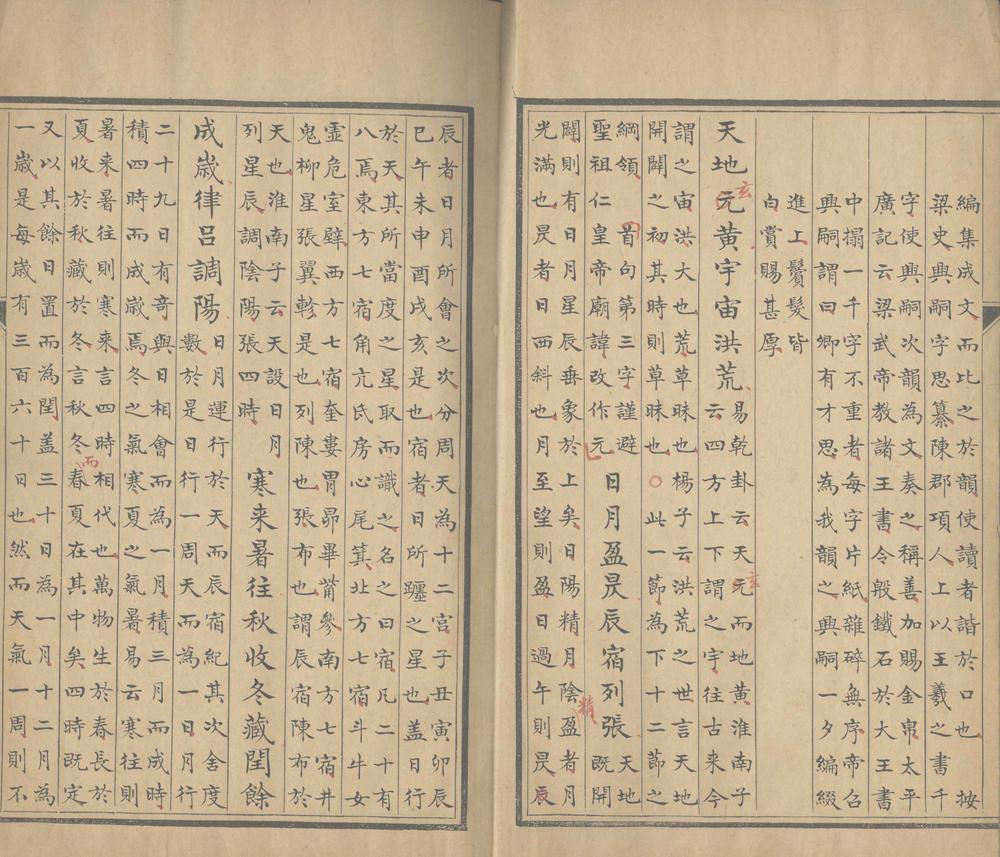 編集成文而比之於韻使讀者諧於口也 按
梁史興嗣字思纂陳郡項人上以王羲之書千
字使興嗣次韻為文奏之稱善加賜金帛太平
廣記云梁武帝教諸王書令殷鐵石於大王書
中搨一千字不重者每字片紙雜碎無序帝召
興嗣謂曰卿有才思為我韻之興嗣一夕編綴
進上鬢髮皆
白賞賜甚厚
天地元黃宇宙洪荒
玄
易乾卦云天元而地黃淮南子
玄
云四方上下謂之宇往古来今
謂之宙洪大也荒草昧也楊子云洪荒之世言天地
開闢之初其時則草昧也○此一節為下十二節之
綱領 首句第三字謹避
聖祖仁皇帝廟諱改作元
日月盈昃辰宿列張
天地
既開
闢則有日月星辰垂象於上矣日陽精月陰盈者月
精
光滿也昃者日西斜也月至望則盈日過午則昃辰
辰者日月所會之次分周天為十二宮子丑寅卯辰
巳午未申酉戌亥是也宿者日所躔之星也盖日行
於天其所當度之星取而識之名之曰宿凡二十有
八焉東方七宿角亢氐房心尾箕北方七宿斗牛女
虛危室壁西方七宿奎婁胃昴畢觜參南方七宿井
鬼柳星張翼軫是也列陳也張布也謂辰宿陳布於
天也淮南子云天設日月
列星辰調陰陽張四時
寒来暑往秋收冬藏閏餘
成歲律呂調陽
日月運行於天而辰宿紀其次舍度
數於是日行一周天而為一日月行
二十九日有奇與日相會而為一月積三月而成時
積四時而成歲焉冬之氣寒夏之氣暑易云寒往則
暑来暑往則寒来言四時相代也萬物生於春長於
而
夏收於秋藏於冬言秋冬春夏在其中矣四時既定
又以其餘日置而為閏盖三十日為一月十二月為
一歲是每歲有三百六十日也然而天氣一周則不